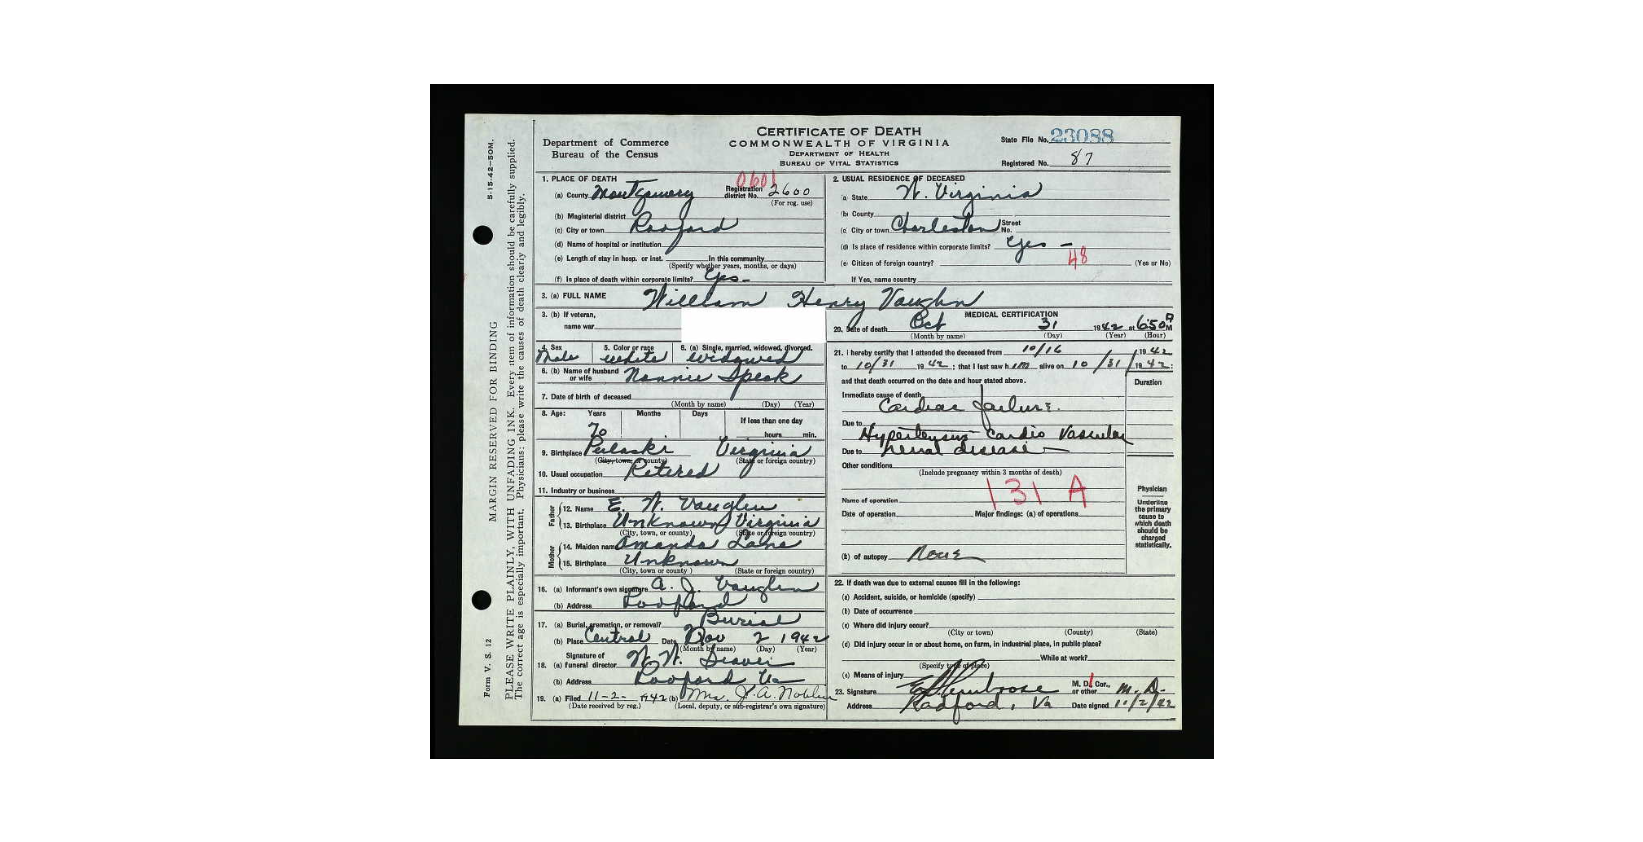 5-15-42—50M.
MARGIN RESERVED FOR BINDING
Form V. S. 12
PLEASE WRITE PLAINLY, WITH UNFADING INK. Every item of information should be carefully supplied.
The correct age is especially important. Physicians: please write the causes of death clearly and legibly.
Department of Commerce
Bureau of the Census
CERTIFICATE OF DEATH
COMMONWEALTH OF VIRGINIA
DEPARTMENT OF HEALTH
BUREAU OF VITAL STATISTICS
State File No. 23088
Registered No. 87
1. PLACE OF DEATH
0601
(a) County Montgomery Registration district No. 2600
(For reg. use)
(b) Magisterial district
(c) City or town Radford
(d) Name of hospital or institution
(e) Length of stay in hosp. or inst. In this community
(Specify whether years, months, or days)
(f) Is place of death within corporate limits? Yes
2. USUAL RESIDENCE OF DECEASED
(a) State W. Virginia
(b) County
(c) City or town Charleston Street No.
(d) Is place of residence within corporate limits? Yes
48
(e) Citizen of foreign country? (Yes or No)
If Yes, name country
3. (a) FULL NAME William Henry Vaughn
3. (b) If veteran,
name war
4. Sex Male 5. Color or race white 6. (a) Single, married, widowed, divorced. Widowed
6. (b) Name of husband or wife Nannie Speak
7. Date of birth of deceased
(Month by name) (Day) (Year)
8. Age: Years Months Days If less than one day
70 hours min.
9. Birthplace Pulaski Virginia
(City, town, or county) (State or foreign country)
10. Usual occupation Retired
11. Industry or business
Father
12. Name E. W. Vaughn
13. Birthplace Unknown Virginia
(City, town, or county) (State or foreign country)
Mother
14. Maiden name Amanda Lane
15. Birthplace Unknown
(City, town or county) (State or foreign country)
16. (a) Informant's own signature A. J. Vaughn
(b) Address Radford
17. (a) Burial, cremation, or removal? Burial
(b) Place Central Date Nov 2 1942
(Month by name) (Day) (Year)
18. (a) Signature of funeral director
(b) Address Radford Va
19. (a) Filed 11-2- 1942 (b) Mrs. J. A. Noblin
(Date received by reg.) (Local, deputy, or sub-registrar's own signature)
MEDICAL CERTIFICATION
20. Date of death Oct 31 1942 at 6:50 A M
(Month by name) (Day) (Year) (Hour)
21. I hereby certify that I attended the deceased from 10/16 1942
to 10/31 1942; that I last saw him alive on 10/31/1942;
and that death occurred on the date and hour stated above.
Duration
Immediate cause of death
Cardiac failure.
Due to
Hypertensive Cardio Vascular
Due to renal disease
Other conditions
(Include pregnancy within 3 months of death)
131 A
Name of operation
Date of operation Major findings: (a) of operations
(b) of autopsy None
Physician
Underline the primary cause to which death should be charged statistically.
22. If death was due to external causes fill in the following:
(a) Accident, suicide, or homicide (specify)
(b) Date of occurrence
(c) Where did injury occur?
(City or town) (County) (State)
(d) Did injury occur in or about home, on farm, in industrial place, in public place?
While at work?
(Specify type of place)
(e) Means of injury
23. Signature M. D., Cor., or other M. D.
Address Radford, Va Date signed 11/2/42